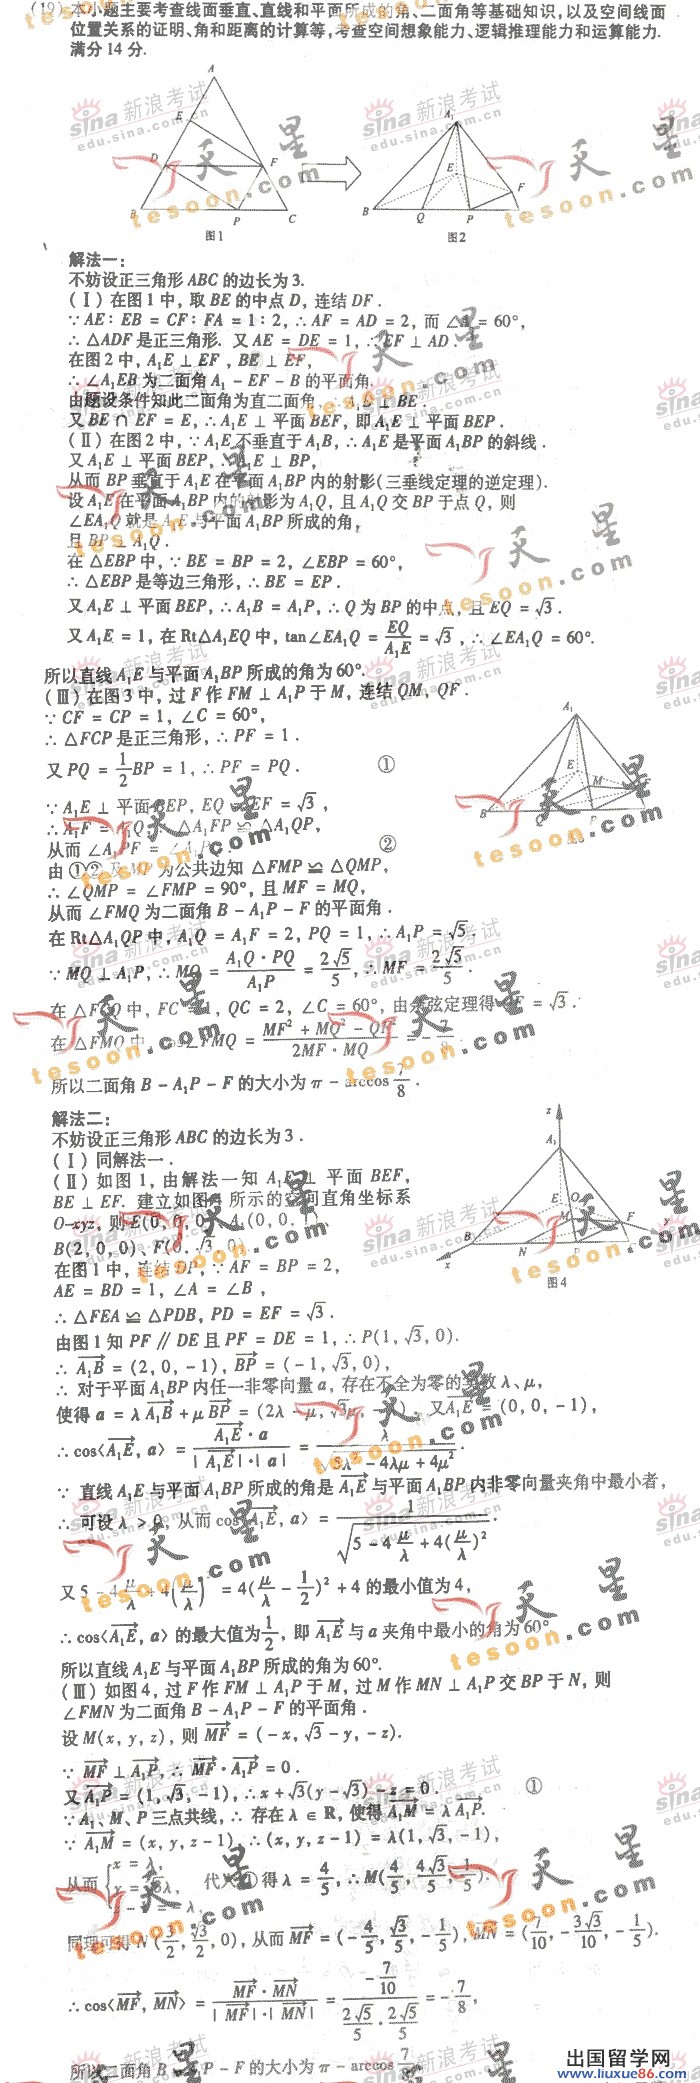 (19) 本小题主要考查线面垂直、直线和平面所成的角、二面角等基础知识,以及空间线面
位置关系的证明、角和距离的计算等,考查空间想象能力、逻辑推理能力和运算能力.
满分14分.
A
E
D
F
B
P
C
图1
A₁
E
F
B
Q
P
图2
解法一:
不妨设正三角形 ABC 的边长为 3.
(Ⅰ) 在图1中,取 BE 的中点 D,连结 DF.
∵ AE∶EB = CF∶FA = 1∶2,∴ AF = AD = 2,而 ∠A = 60°,
∴ △ADF 是正三角形. 又 AE = DE = 1,∴ EF ⊥ AD.
在图2中,A₁E ⊥ EF,BE ⊥ EF,
∴ ∠A₁EB 为二面角 A₁ - EF - B 的平面角.
由题设条件知此二面角为直二面角, ∴ A₁E ⊥ BE.
又 BE ∩ EF = E,∴ A₁E ⊥ 平面 BEF,即 A₁E ⊥ 平面 BEP.
(Ⅱ) 在图2中,∵ A₁E 不垂直于 A₁B,∴ A₁E 是平面 A₁BP 的斜线.
又 A₁E ⊥ 平面 BEP,∴ A₁E ⊥ BP,
从而 BP 垂直于 A₁E 在平面 A₁BP 内的射影(三垂线定理的逆定理).
设 A₁E 在平面 A₁BP 内的射影为 A₁Q,且 A₁Q 交 BP 于点 Q,则
∠EA₁Q 就是 A₁E 与平面 A₁BP 所成的角,
且 BP ⊥ A₁Q.
在 △EBP 中,∵ BE = BP = 2,∠EBP = 60°,
∴ △EBP 是等边三角形,∴ BE = EP.
又 A₁E ⊥ 平面 BEP,∴ A₁B = A₁P,∴ Q 为 BP 的中点,且 EQ = √3.
又 A₁E = 1,在 Rt△A₁EQ 中,tan∠EA₁Q = EQ/A₁E = √3,∴ ∠EA₁Q = 60°.
所以直线 A₁E 与平面 A₁BP 所成的角为 60°.
(Ⅲ) 在图3中,过 F 作 FM ⊥ A₁P 于 M,连结 QM,QF.
∵ CF = CP = 1,∠C = 60°,
∴ △FCP 是正三角形,∴ PF = 1.
又 PQ = 1/2 BP = 1,∴ PF = PQ. ①
∵ A₁E ⊥ 平面 BEP,EQ = EF = √3,
∴ A₁F = A₁Q, △A₁FP ≌ △A₁QP,
从而 ∠A₁PF = ∠A₁P. ②
由 ①② 及 MP 为公共边知 △FMP ≌ △QMP,
∴ ∠QMP = ∠FMP = 90°,且 MF = MQ,
从而 ∠FMQ 为二面角 B - A₁P - F 的平面角.
在 Rt△A₁QP 中,A₁Q = A₁F = 2,PQ = 1,∴ A₁P = √5.
∵ MQ ⊥ A₁P,∴ MQ = A₁Q · PQ/A₁P = 2√5/5,∴ MF = 2√5/5.
在 △FCQ 中,FC = 1,QC = 2,∠C = 60°,由余弦定理得 QF = √3.
在 △FMQ 中, cos∠FMQ = MF² + MQ² - QF²/2MF · MQ = - 7/8.
所以二面角 B - A₁P - F 的大小为 π - arccos 7/8.
解法二:
不妨设正三角形 ABC 的边长为 3.
(Ⅰ) 同解法一.
(Ⅱ) 如图1,由解法一知 A₁E ⊥ 平面 BEF,
BE ⊥ EF. 建立如图4所示的空间直角坐标系
O—xyz,则 E(0,0,0),A₁(0,0,1),
B(2,0,0),F(0,√3,0).
在图1中,连结 DP,∵ AF = BP = 2,
AE = BD = 1,∠A = ∠B,
∴ △FEA ≌ △PDB,PD = EF = √3.
由图1知 PF ∥ DE 且 PF = DE = 1,∴ P(1,√3,0).
∴ A₁B = (2,0,-1),BP = (-1,√3,0),
∴ 对于平面 A₁BP 内任一非零向量 a,存在不全为零的实数 λ、μ,
使得 a = λA₁B + μBP = (2λ - μ,√3μ,-λ). 又 A₁E = (0,0,-1),
∴ cos⟨A₁E,a⟩ = A₁E · a/|A₁E|·|a| = λ/√5λ² - 4λμ + 4μ².
∵ 直线 A₁E 与平面 A₁BP 所成的角是 A₁E 与平面 A₁BP 内非零向量夹角中最小者,
∴ 可设 λ > 0,从而 cos⟨A₁E,a⟩ = 1/√5 - 4 μ/λ + 4(μ/λ)².
又 5 - 4 μ/λ + 4(μ/λ)² = 4(μ/λ - 1/2)² + 4 的最小值为 4,
∴ cos⟨A₁E,a⟩ 的最大值为 1/2,即 A₁E 与 a 夹角中最小的角为 60°
所以直线 A₁E 与平面 A₁BP 所成的角为 60°.
(Ⅲ) 如图4,过 F 作 FM ⊥ A₁P 于 M,过 M 作 MN ⊥ A₁P 交 BP 于 N,则
∠FMN 为二面角 B - A₁P - F 的平面角.
设 M(x,y,z),则 MF = (-x,√3 - y,-z).
∵ MF ⊥ A₁P,∴ MF · A₁P = 0.
又 A₁P = (1,√3,-1),∴ x + √3(y - √3) - z = 0. ①
∵ A₁、M、P 三点共线,∴ 存在 λ ∈ R,使得 A₁M = λA₁P.
∵ A₁M = (x,y,z-1),∴ (x,y,z-1) = λ(1,√3,-1),
从而 { x = λ, y = √3λ, z - 1 = -λ, 代入①得 λ = 4/5,∴ M(4/5,4√3/5,1/5).
同理可得 N(3/2,√3/2,0),从而 MF = (-4/5,√3/5,-1/5),MN = (7/10,-3√3/10,-1/5).
∴ cos⟨MF,MN⟩ = MF · MN/|MF|·|MN| = -7/10 / 2√5/5 · 2√5/5 = -7/8,
所以二面角 B - A₁P - F 的大小为 π - arccos 7/8.
图4
出国留学网
www.liuxue86.com